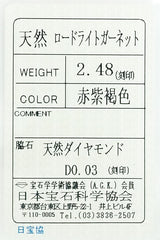 天然 ロードライトガーネット
WEIGHT 2.48(刻印)
COLOR 赤紫褐色
COMMENT
脇石 天然ダイヤモンド
D0.03 (刻印)
宝石学学術協議会(A.G.K.)会員
日本宝石科学協会
東京都台東区上野5-22-1 井上ビル4F
〒110-0005 Tel.(03)3836-2507
日宝協